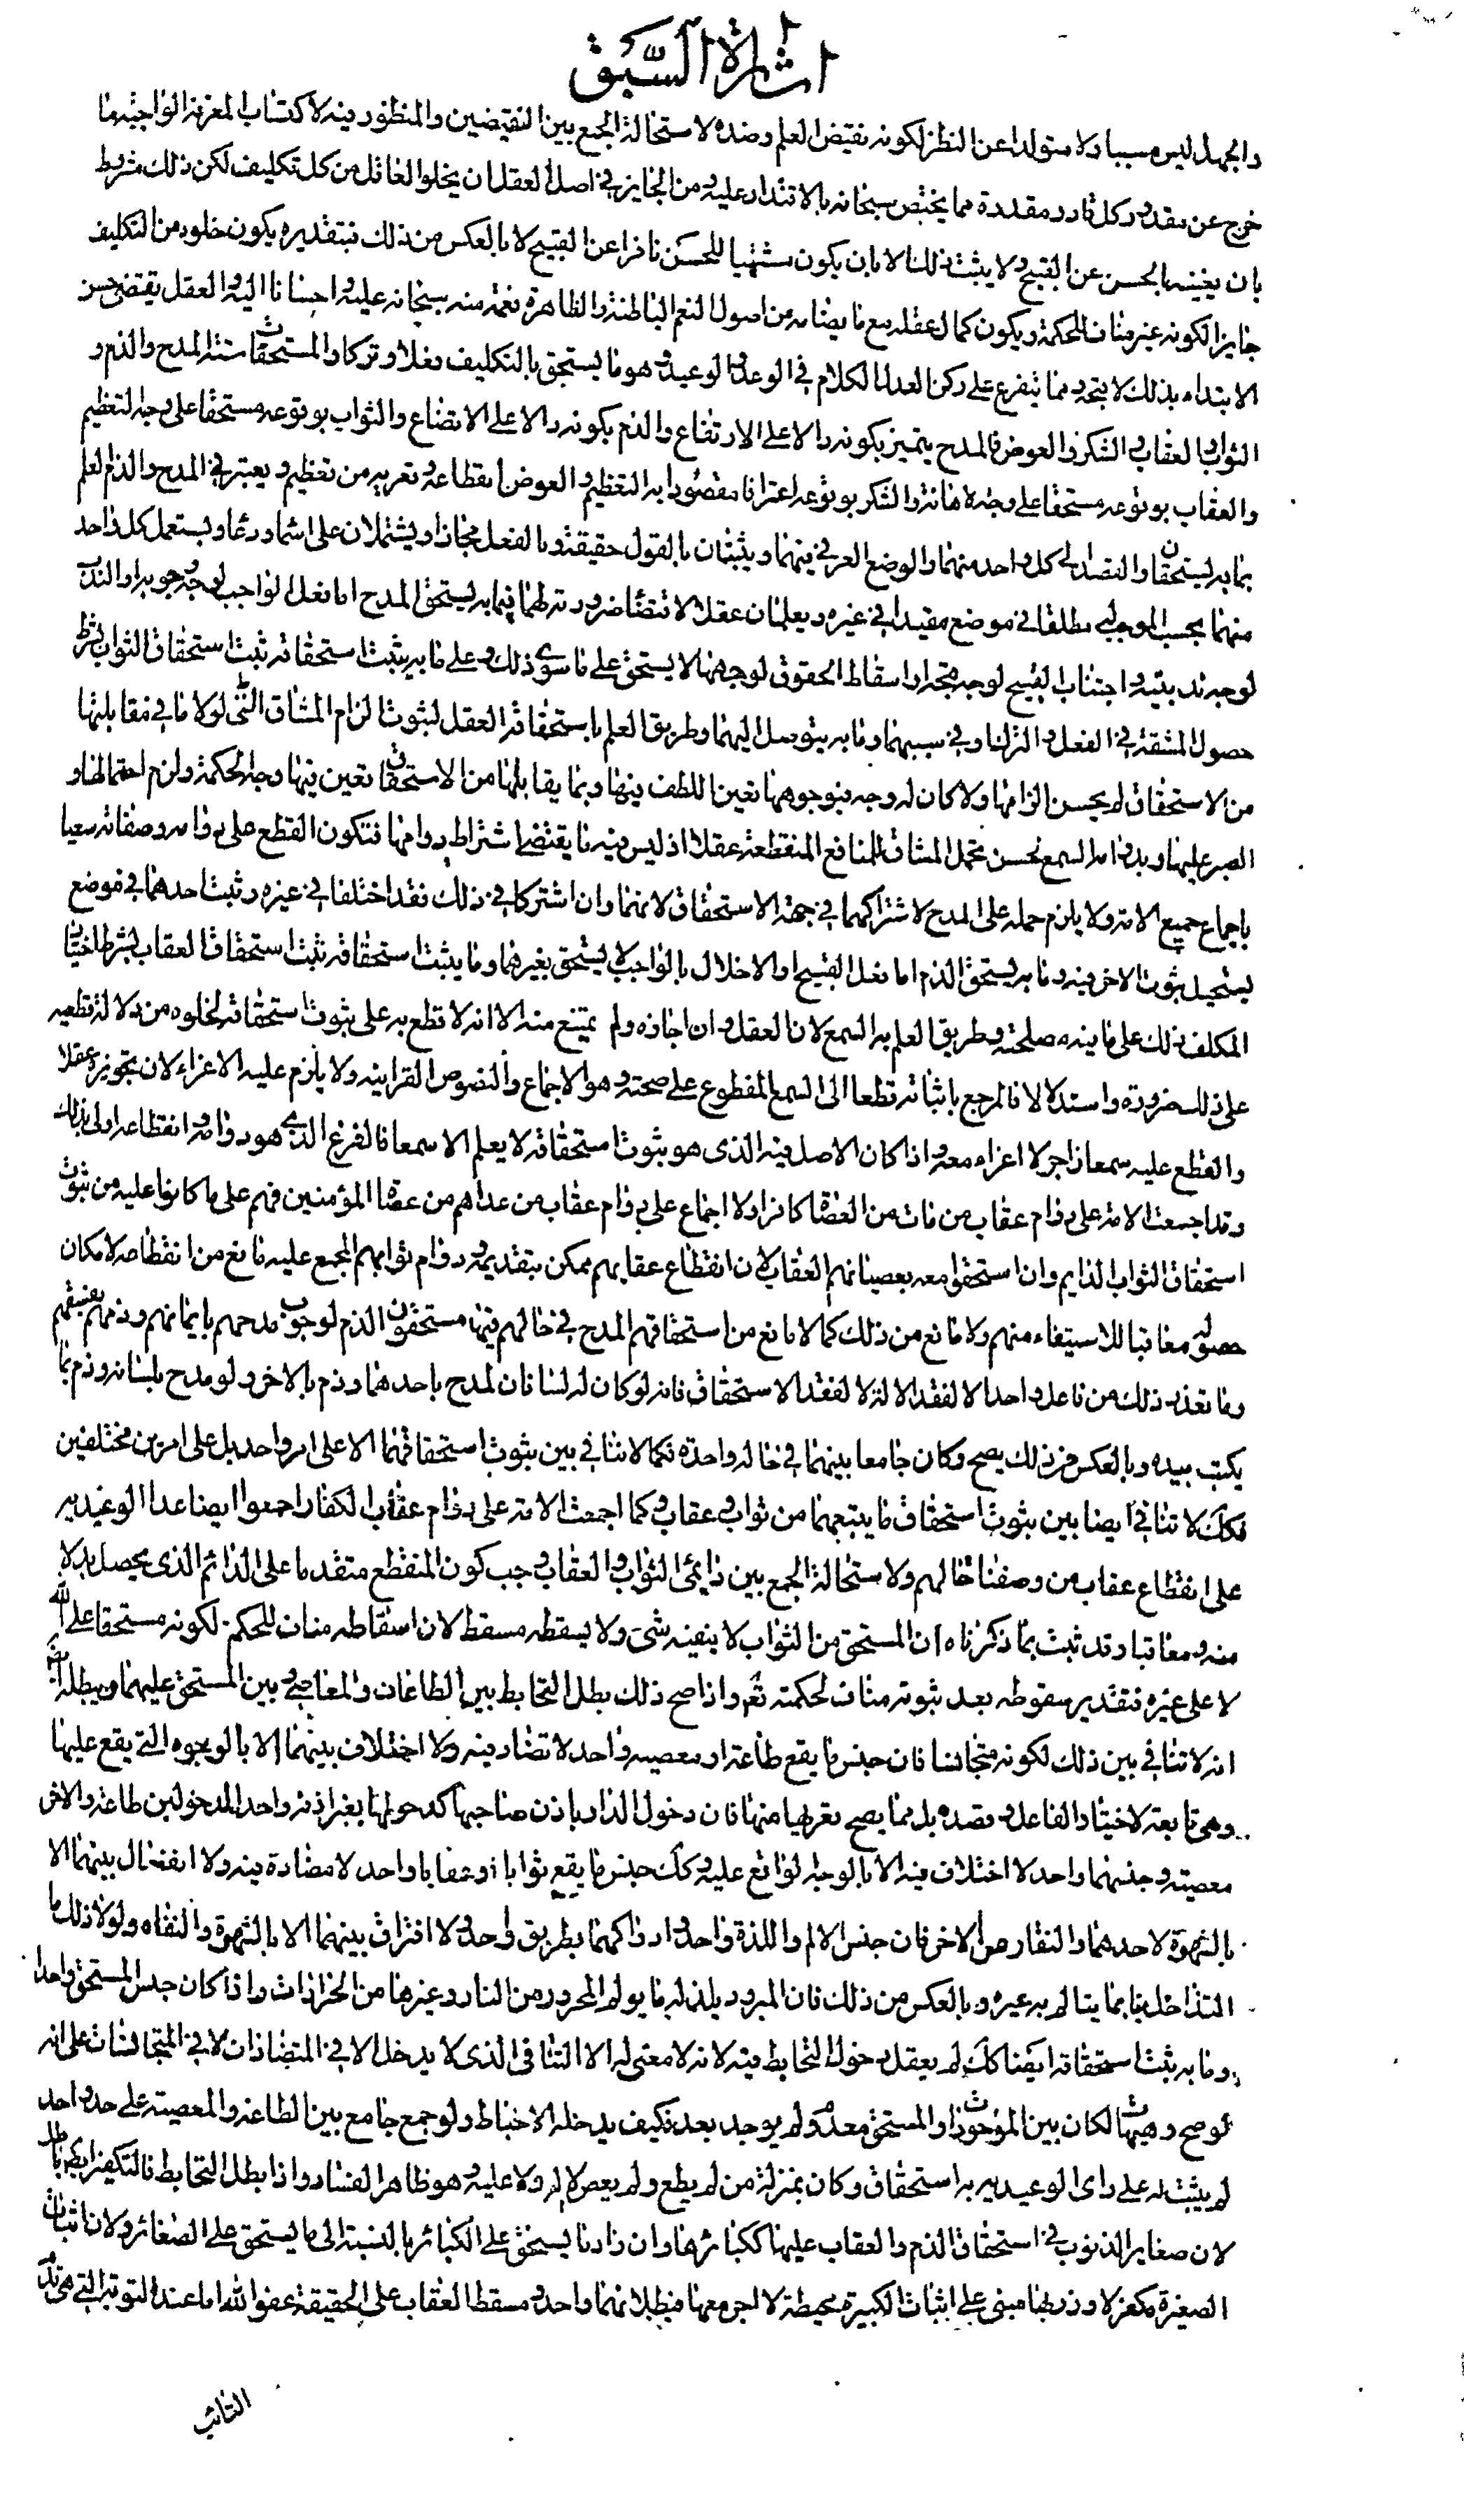 اشارة السَّبق
والجهل ليس مسببا ولا متولدا عن النظر لكونه نقيض العلم وضده لاستحالة الجمع بين النقيضين والمنظور فيه لاكتساب المعرفة الواجبة ما
خرج عن مقدور كل قادر مقدرة مما يختص سبحانه بالاقتدار عليه ومن الجايز في اصل العقل ان يخلوا العاقل من كل تكليف لكن ذلك شرط
بان يغنيه بالحسن عن القبيح ولا يثبت ذلك الا بان يكون مشتهيا للحسن نافرا عن القبيح لا بالعكس من ذلك فبتقديره يكون خلوه من التكليف
جايزا لكونه غير مناف للحكمة ويكون كمال عقله مع ما يضامه من اصول النعم الباطنة والظاهرة نعمة منه سبحانه عليه واحسانا اليه والعقل يقتضى حسن
الابتداء بذلك لا يتجه ومما يتفرع على ركن العدل الكلام في الوعد والوعيد وهو ما يستحق بالتكليف فعلا وتركا والمستحقات ستة المدح والذم و
الثواب والعقاب والشكر والعوض فالمدح يتميز بكونه دالا على الارتفاع والذم بكونه دالا على الاتضاع والثواب بوقوعه مستحقا على وجه التعظيم
والعقاب بوقوعه مستحقا على وجه الاهانة والشكر بوقوعه اعترافا مقصودا به التعظيم والعوض انقطاعه وتعريه من تعظيم ويعتبر في المدح والذم العلم
بما به يستحقان والقصد الى كل واحد منهما والوضع العرفي فيهما ويثبتان بالقول حقيقة وبالفعل مجازا ويشتملان على اسماء ودعاء ويستعمل كل واحد
منهما بحسب الموجب له مطلقا في موضع مقيدا في غيره ويعلمان عقلا لاقتضاء ضرورته لهما فيما به يستحق المدح اما فعل الواجب لوجه وجوبه او الندب
لوجه ندبيته واجتناب القبيح لوجه قبحه او اسقاط الحقوق لوجهها لا يستحق على ما سوى ذلك وعلى ما به يثبت استحقاقه يثبت استحقاق الثواب بشرط
حصول المشقة في الفعل والترك او في سببهما وما به يتوصل اليهما وطريق العلم باستحقاقه العقل لثبوت الزام المشاق التى لولا ما في مقابلتها
من الاستحقاق لم يحسن الزامها ولا كان له وجه فبوجوهها تعين اللطف فيها وبما يقابلها من الاستحقاق تعين فيها وجه الحكمة ولزم احتمالها و
الصبر عليها وبدوامه السمع لحسن تحمل المشاق للمنافع المنقطعة عقلا اذ ليس فيه ما يقتضى اشتراط دوامها فتكون القطع على دوامه وصفاته سمعيا
باجماع جميع الامة ولا يلزم حمله على المدح لاشتراكهما في جهة الاستحقاق لانهما وان اشتركا في ذلك فقد اختلفا في غيره وثبت احدهما في موضع
يستحيل ثبوت الاخر فيه وما به يستحق الذم اما فعل القبيح او الاخلال بالواجب لا يستحق بغيرهما وما يثبت استحقاقه ثبت استحقاق العقاب بشرط اختيار
المكلف ذلك على ما فيه مصلحته وطريق العلم به السمع لان العقل وان اجازه ولم يمتنع منه الا انه لا قطع به على ثبوت استحقاقه لخلوه من دلالة قطعيه
على ذلك ضرورة واستدلالا فالمرجع باثباته قطعا الى السمع المقطوع على صحته وهو الاجماع والنصوص القرانيه ولا يلزم عليه الاغراء لان تجويزه عقلا
والقطع عليه سمعا زاجر لا اغراء معه واذا كان الاصل فيه الذى هو ثبوت استحقاقه لا يعلم الا سمعا فالفرع الذى هو دوامه وانقطاعه اولى بذلك
وقد اجمعت الامة على دوام عقاب من مات من العصاة كافرا ولا اجماع على دوام عقاب من عداهم من عصاة المؤمنين فهم على ما كانوا عليه من ثبوت
استحقاق الثواب الدايم وان استحقوا معه بعصيانهم العقاب لان انقطاع عقابهم ممكن بتقديمه ودوام ثوابهم المجمع عليه مانع من انقطاعه لامكان
حصوله معاقبا للاستيفاء منهم ولا مانع من ذلك كما لا مانع من استحقاقهم المدح في حالهم فيها مستحقون الذم لوجوب مدحهم بايمانهم وذمهم بفسقهم
وما تعذر ذلك من فاعل واحد الا لفقد الالة لا لفقد الاستحقاق فانه لو كان له لسانان لمدح باحدهما وذم بالاخر ولو مدح بلسانه وذم بما
يكتب بيده وبالعكس من ذلك يصح وكان جامعا بينهما في حالة واحدة فكما لا تنافي بين ثبوت استحقاقهما الا على امر واحد بل على امرين مختلفين
فكك لا تنافي ايضا بين ثبوت استحقاق ما يتبعهما من ثواب وعقاب وكما اجمعت الامة على دوام عقاب الكفار اجمعوا ايضا عدا الوعيديه
على انقطاع عقاب من وصفنا حالهم ولاستحالة الجمع بين دايمى الثواب والعقاب وجب كون المنقطع متقدما على الدائم الذى يحصل بدلا
منه ومعاقبا وقد ثبت بما ذكرناه ان المستحق من الثواب لا ينفيه شيء ولا يسقطه مسقط لان اسقاطه مناف للحكمة لكونه مستحقا على الله
لا على غيره فتقدير سقوطه بعد ثبوته مناف لحكمته تع واذا صح ذلك بطل التحابط بين الطاعات والمعاصي وبين المستحق عليهما ويبطله ايضا
انه لا تنافي بين ذلك لكونه متجانسا فان جنس ما يقع طاعة او معصيه واحد لا تضاد فيه ولا اختلاف بينهما الا بالوجوه التى يقع عليها
وهى تابعة لاختيار الفاعل وقصده بل مما يصح تعريها منها فان دخول الدار باذن صاحبها كدخولها بغير اذنه واحد الدخولين طاعة والاخر
معصيته وجنسهما واحد لا اختلاف فيه الا بالوجه الواقع عليه وكك جنس ما يقع ثوابا او عقابا واحد لا مضادة فيه ولا انفصال بينهما الا
بالشهوة لاحدهما والنفار عن الاخر فان جنس الالم واللذة واحد وادراكهما بطريق واحد ولا افتراق بينهما الا بالشهوة والنفار ولولا ذلك ما
التذ احدنا بما يتالم به غيره وبالعكس من ذلك فان المبرود يلتذ له بما يولم المحرور من النار وغيرها من الحرارات واذا كان جنس المستحق واحدا
وما به يثبت استحقاقه ايضا كك لم يعقل دخول التحابط فيه لانه لا معنى له الا التنافى الذى لا يدخل الا في المتضادات لا في المتجانسات على انه
لو صح وهيهات لكان بين الموجودات والمستحق معدوم لم يوجد بعد فكيف يدخله الاحباط ولو جمع جامع بين الطاعة والمعصيته على حد واحد
لم يثبت له على راى الوعيديه به استحقاق وكان بمنزلة من لم يطع ولم يعص لا له ولا عليه وهو ظاهر الفساد واذا بطل التحابط فالتكفير ايضا باطل
لان صغاير الذنوب في استحقاق الذم والعقاب عليها ككبائرها وان زاد ما يستحق على الكبائر بالنسبة الى ما يستحق على الصغائر ولان اثبات
الصغيرة مكفرا لا وزر لها مبنى على اثبات الكبيرة محبطة لا اجر معها فبطلانهما واحد ومسقط العقاب على الحقيقة عفو الله اما عند التوبة التى هى ندم
التائب